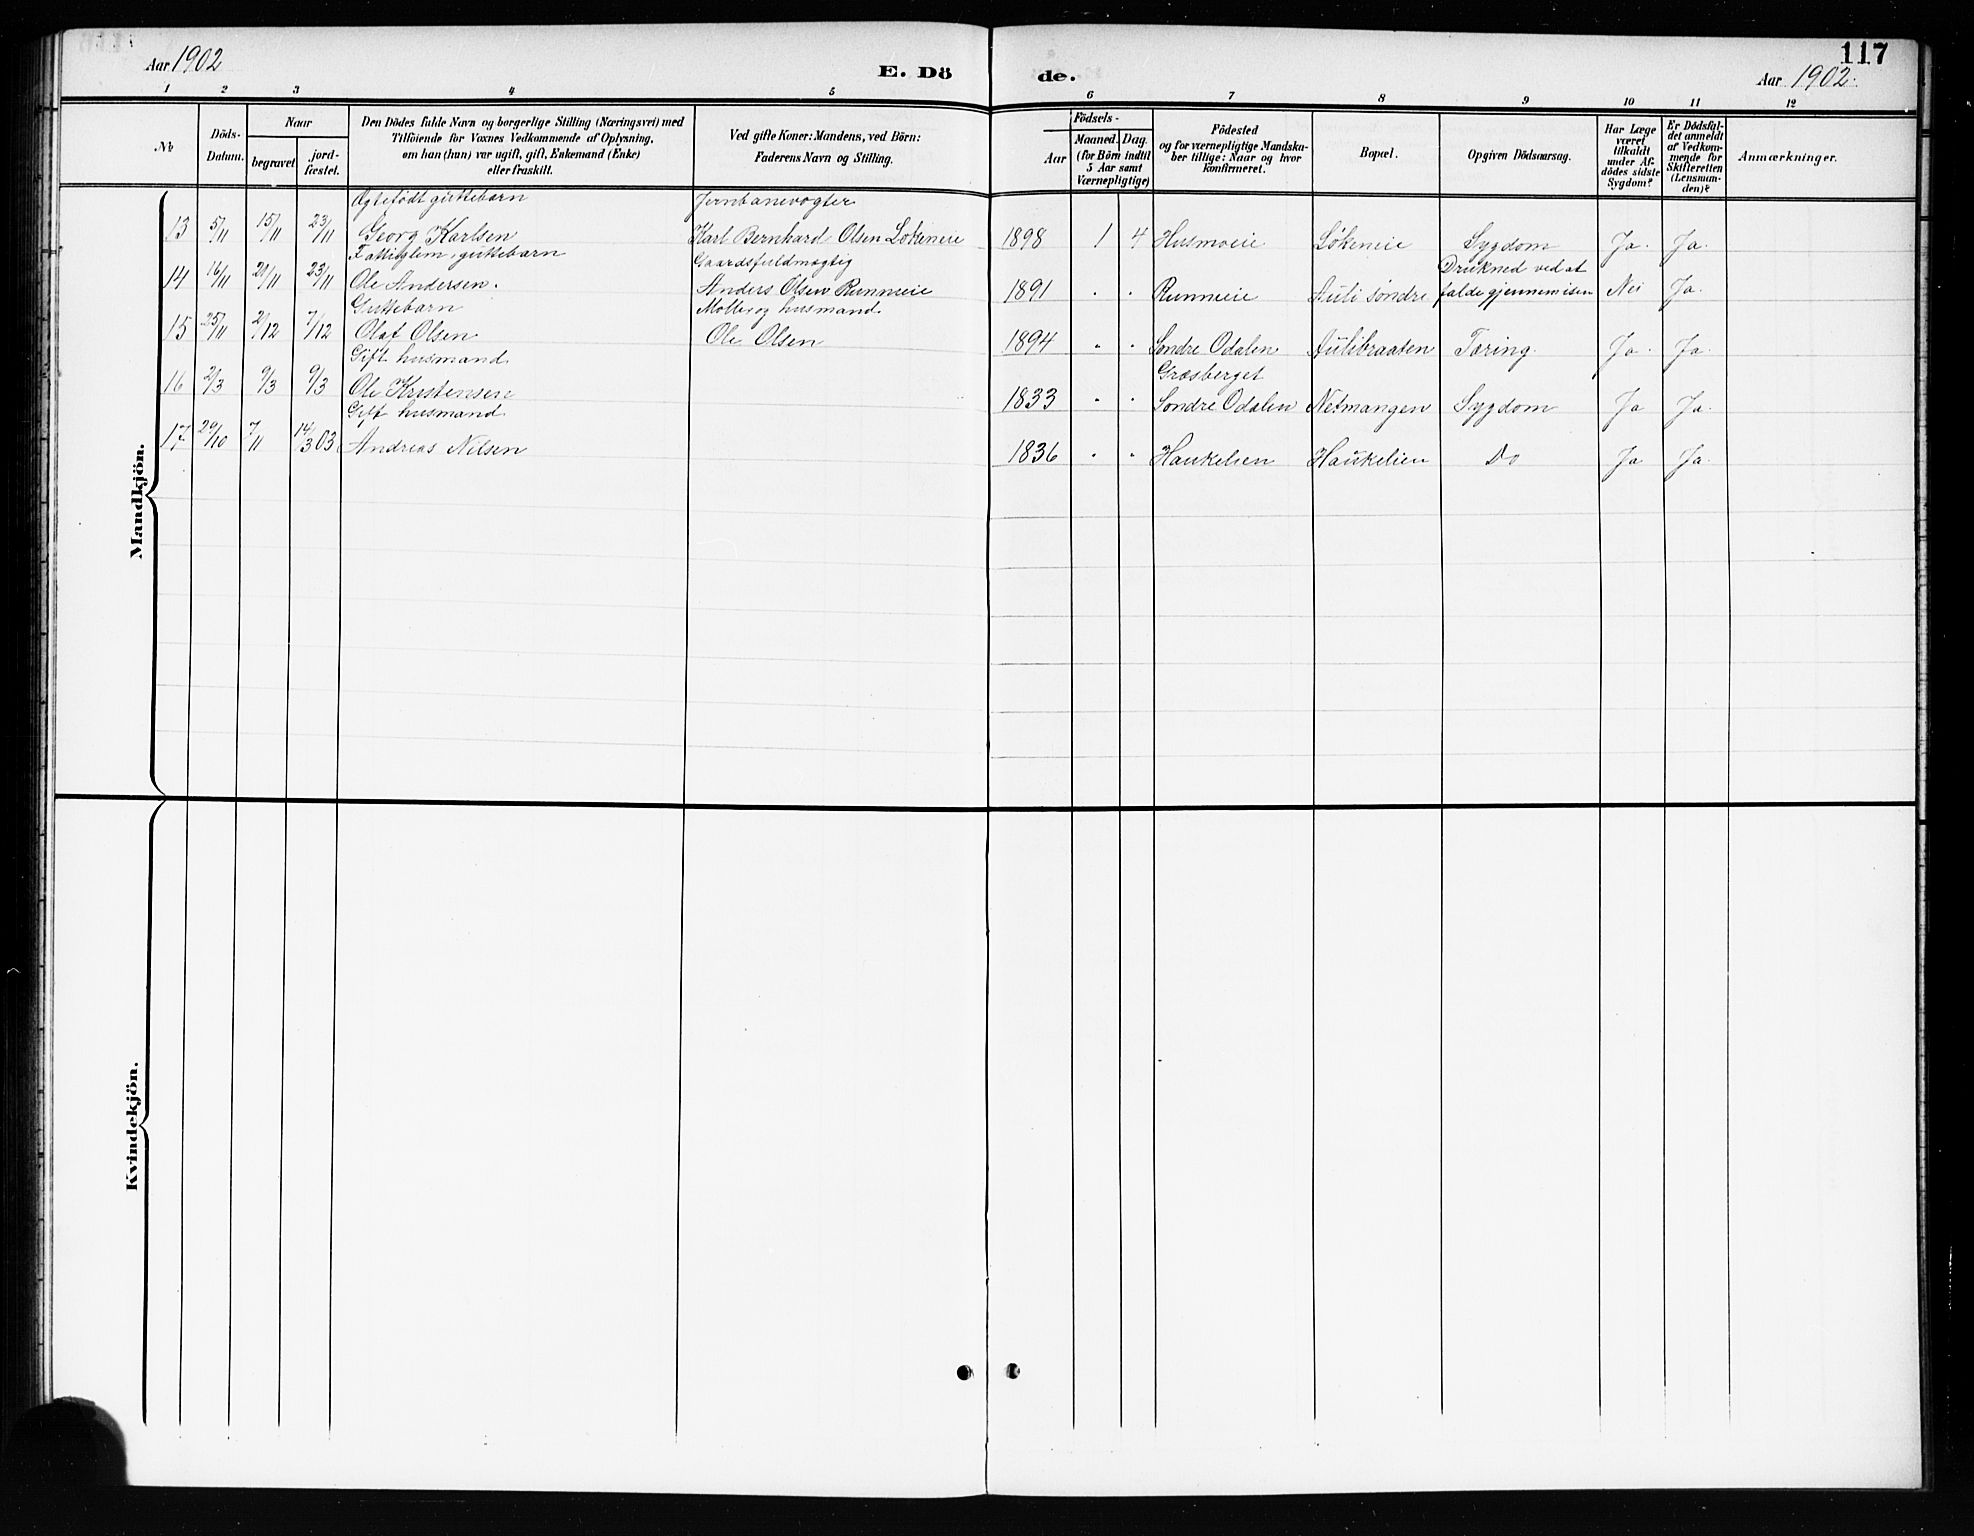 117
Aar 1902
E. Dö
de.
Aar 1902.
1 2 3 4 5
6 7 8 9 10 11 12
№
Döds-
Datum.
Naar
begravet
jord-
fæstet.
Den Dödes fulde Navn og borgerlige Stilling (Næringsvei) med
Tilföiende for Voxnes Vedkommende af Oplysning,
om han (hun) var ugift, gift, Enkemand (Enke)
eller fraskilt.
Ved gifte Koner: Mandens, ved Börn:
Faderens Navn og Stilling.
Födsels-
Aar
Maaned.
Dag.
(for Börn indtil
5 Aar samt
Værnepligtige)
Födested
og for værnepligtige Mandska-
ber tillige: Naar og hvor
konfirmeret.
Bopæl.
Opgiven Dödsaarsag.
Har Læge
været
tilkaldt
under Af-
dödes sidste
Sygdom?
Er Dödsfal-
det anmeldt
af Vedkom-
mende for
Skifteretten
(Lensman-
den)?
Anmærkninger.
Mandkjön.
Ægtefödt guttebarn Jernbanevogter
13 5/11 15/11 23/11 Georg Karlsen Karl Bernhard Olsen Løkeneie 1898 1 4 Husmoeie Løkeneie Sygdom Ja. Ja.
Fattiglem, guttebarn Gaardsfuldmægtig Drukned ved at
14 16/11 21/11 23/11 Ole Andersen. Anders Olsen Runmeie 1891 " " Runmeie Auli søndre falde gjennem isen Nei Ja.
Guttebarn Møller og husmand.
15 25/11 2/12 7/12 Olaf Olsen Ole Olsen 1894 " " Søndre Odalen Aulibraaten Tæring. Ja. Ja.
Gift husmand Græsberget
16 2/3 9/3 9/3 Ole Kristensen 1833 " " Søndre Odalen Netmangen Sygdom Ja Ja.
Gift husmand
17 29/10 7/11 14/3 03 Andreas Nilsen 1836 " " Haukelien Haukelien Do Ja Ja.
Kvindekjön.